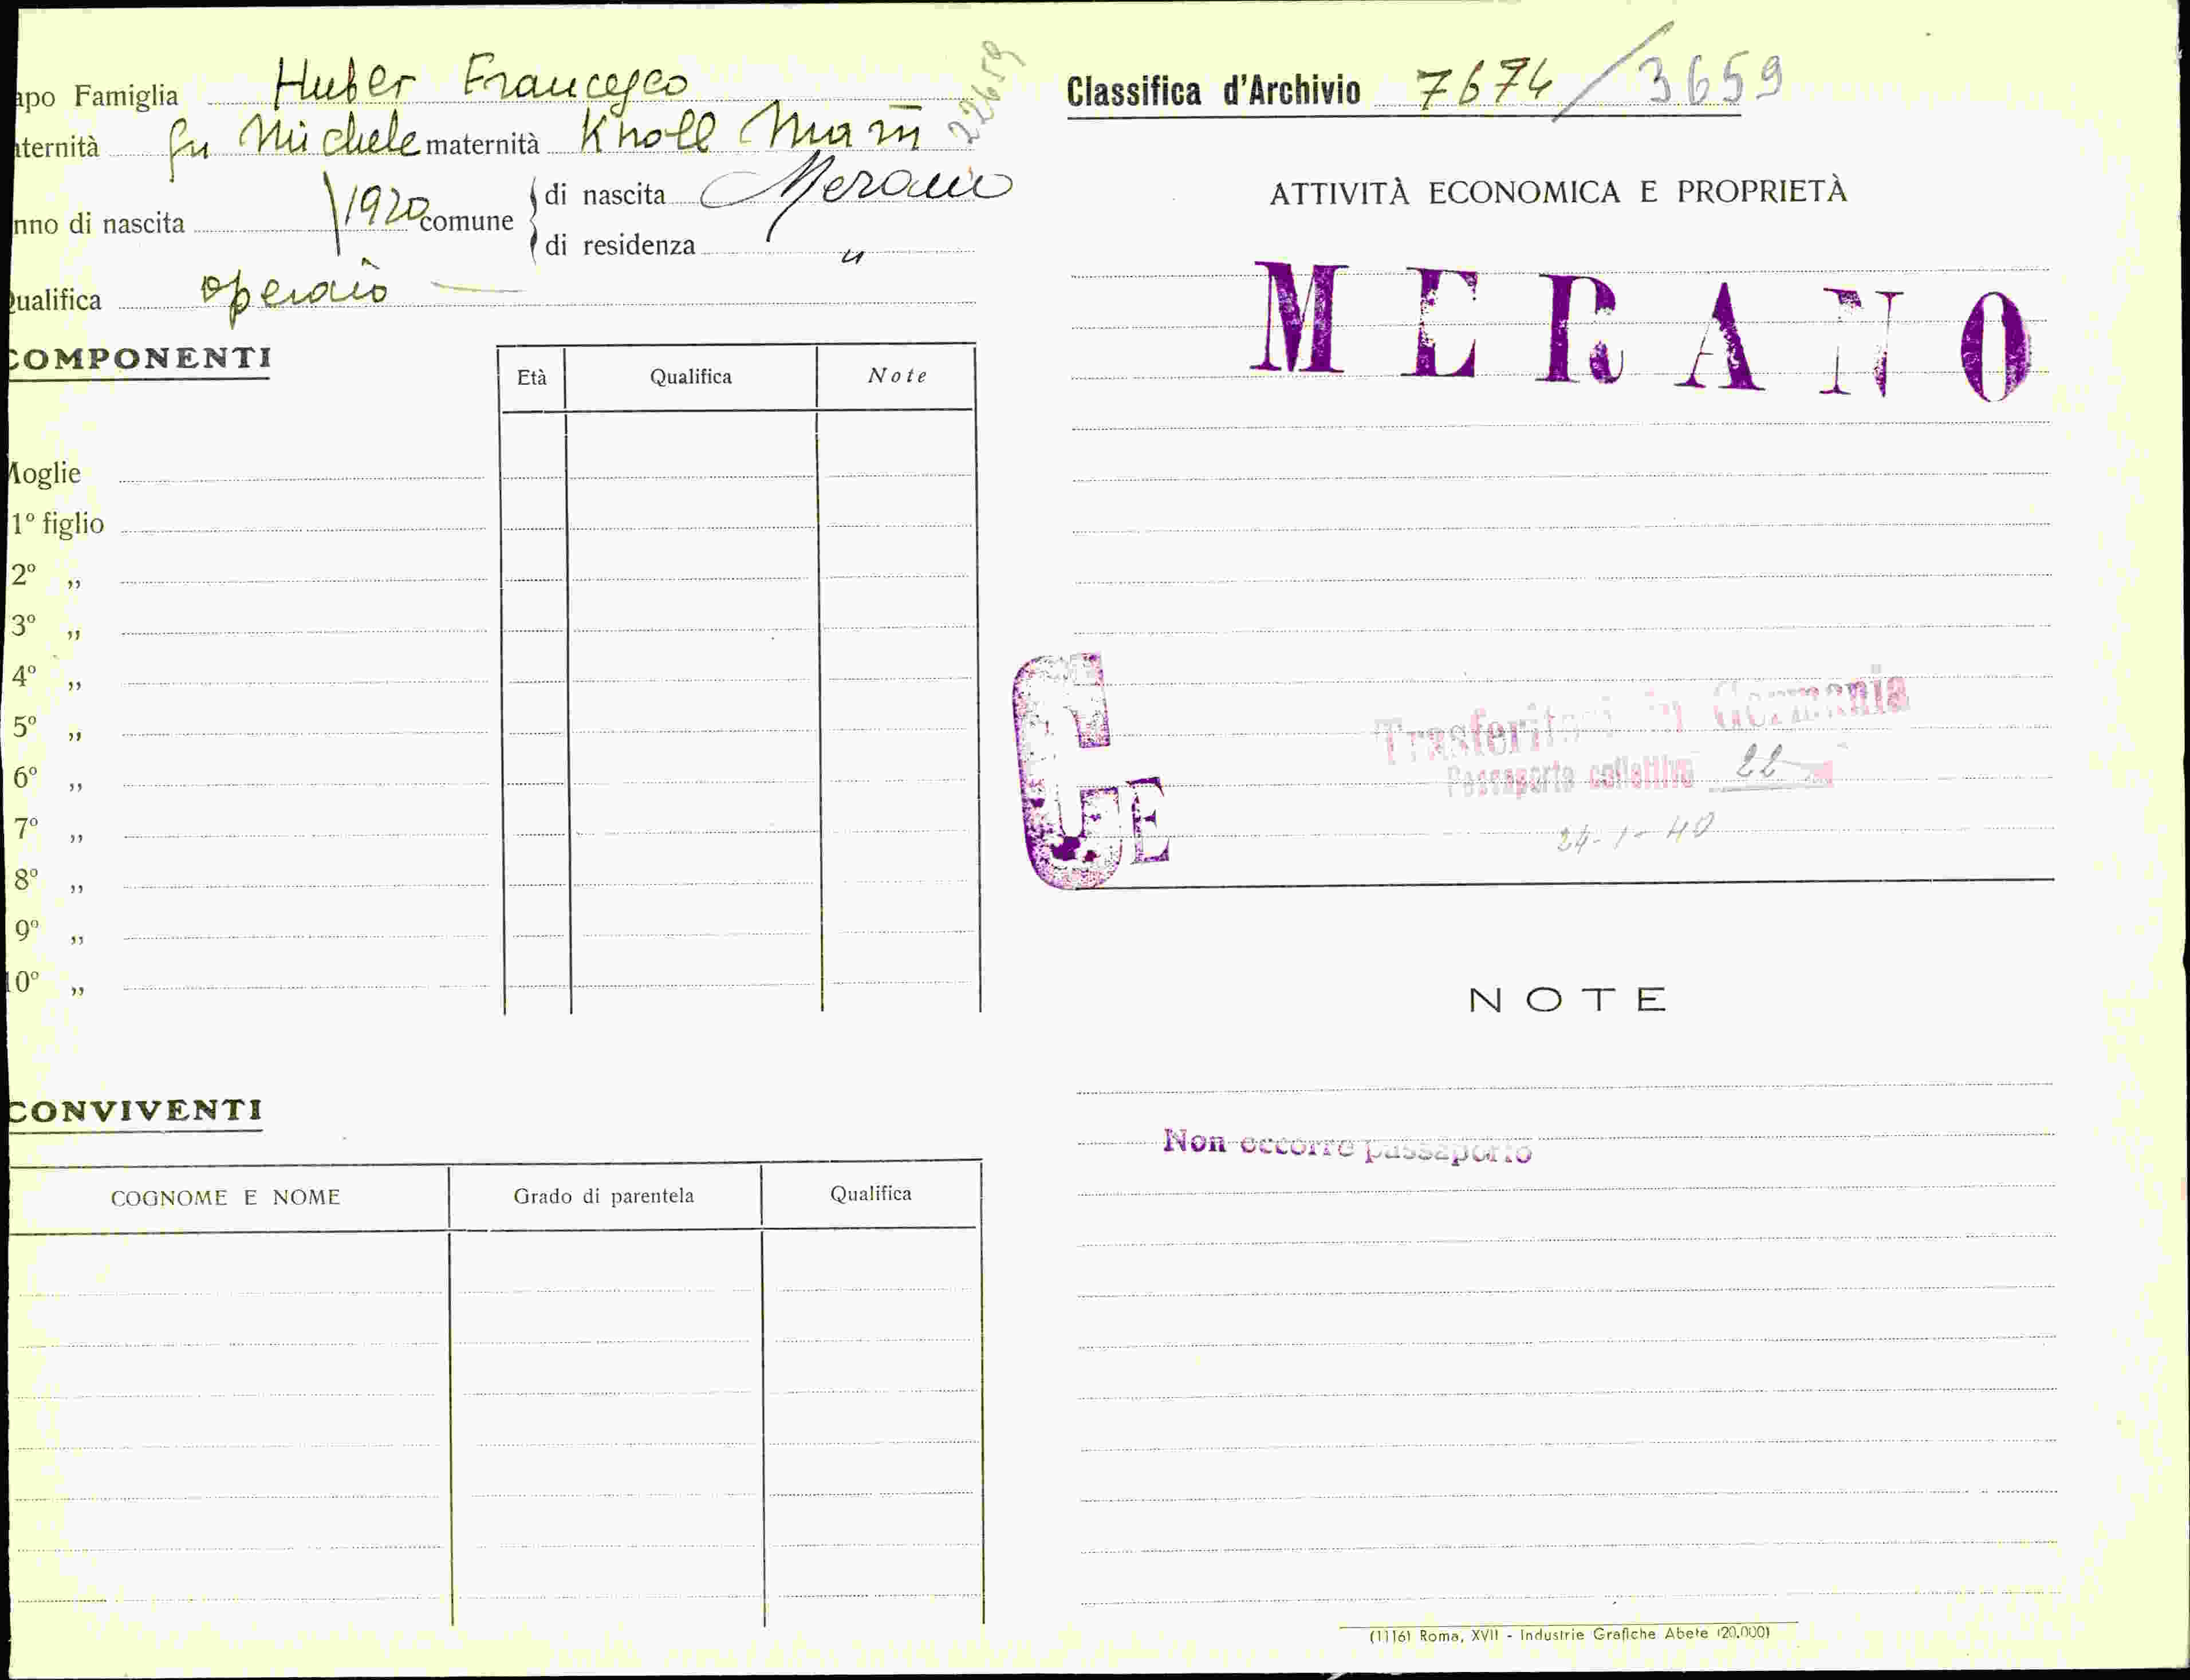 apo Famiglia Huber Francesco
aternità fu Michele maternità Knoll Maria
22659
nno di nascita 1920 comune di nascita Merano
di residenza "
Qualifica operaio
COMPONENTI
Età Qualifica Note
Moglie
1º figlio
2º "
3º "
4º "
5º "
6º "
7º "
8º "
9º "
10º "
CONVIVENTI
COGNOME E NOME Grado di parentela Qualifica
Classifica d'Archivio 7674/3659
ATTIVITÀ ECONOMICA E PROPRIETÀ
MERANO
Trasferitosi in Germania
Passaporto collettivo 22
24-1-40
NOTE
Non occorre passaporto
(1116) Roma, XVII - Industrie Grafiche Abete (20.000)